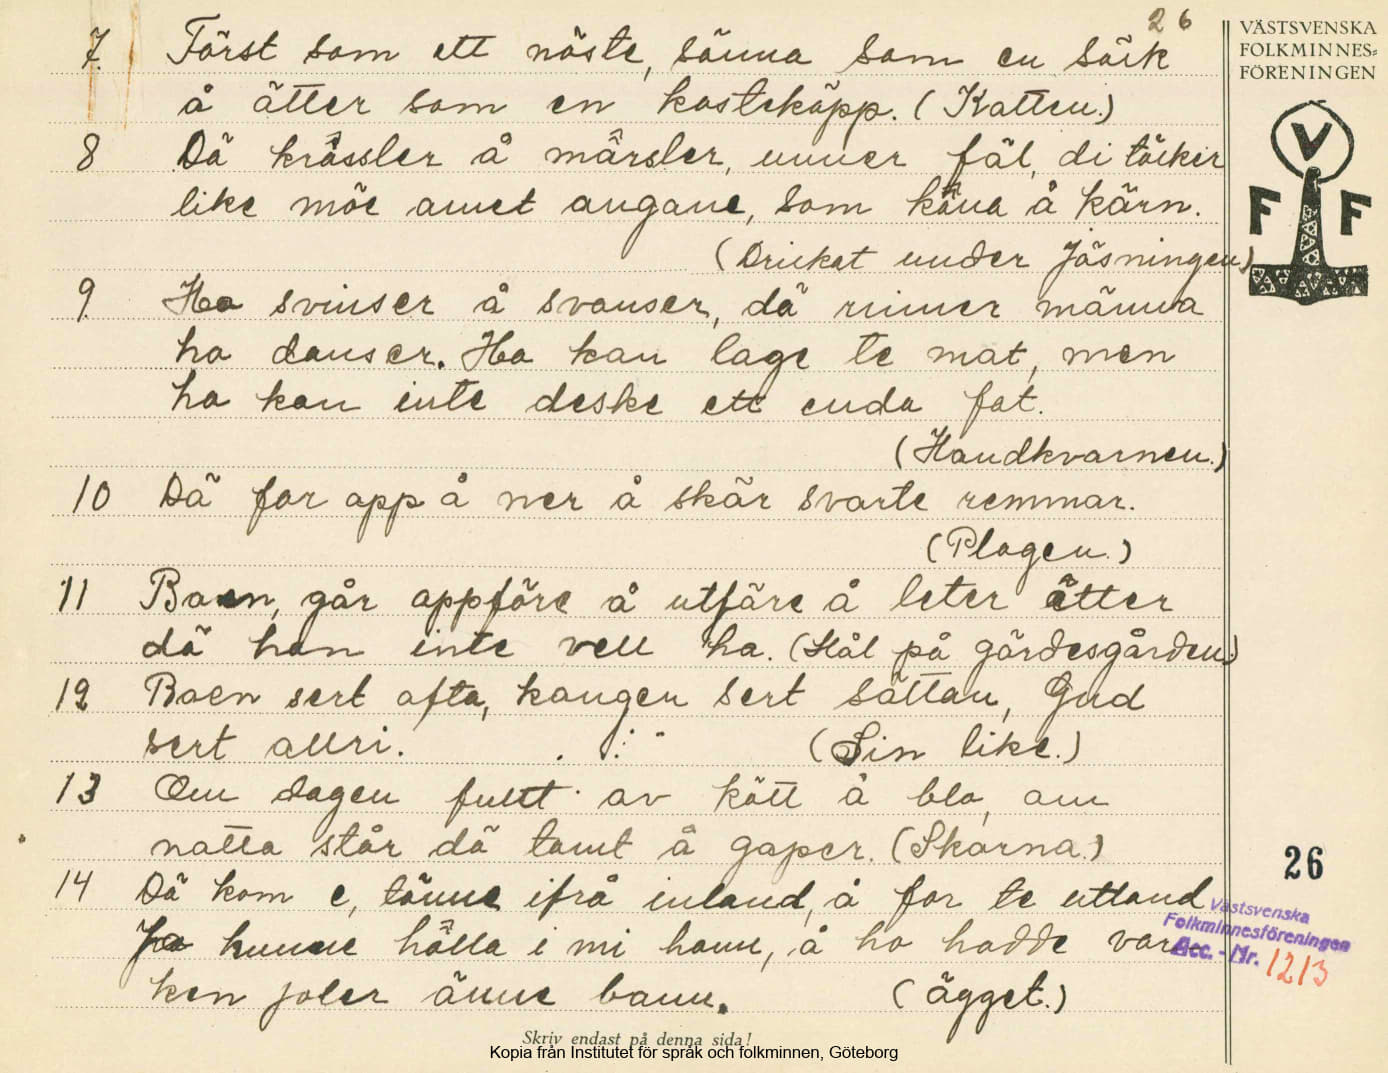 26
VÄSTSVENSKA
FOLKMINNES-
FÖRENINGEN
V
F F
7. Först som ett nöste, sänna som en säck
å ätter som en kosteköpp. (Katten.)
8 Dä krässler å märsler, unner fäl, di täcker
like möe amet augane, som käna å kärn.
(Drickat under jäsningen)
9. Ho svinser å svanser, dä rinner männa
ho danser. Ho kan lage te mat, men
ho kan inte deske ett enda fat.
(Handkvarnen.)
10 Dä far app å ner å skär svarte remmar.
(Plogen.)
11 Boen, går appföre å utfäre å leter ätter
dä han inte vell ha. (Hål på gärdesgården.)
12 Boen sert ofta, kongen sert sättan, Gud
sert allri. (Sin like.)
13 Om dagen fullt av kött å blo, om
natta står dä tomt å gaper. (Skorna.)
14 Dä kom e, tönne ifrå inland, å for te utland
Ja kunne hölla i mi hann, å ho hadde var-
ken joler änne bann. (ägget.)
26
Västsvenska
Folkminnesföreningen
Acc. - Nr. 1213
Skriv endast på denna sida!
Kopia från Institutet för språk och folkminnen, Göteborg